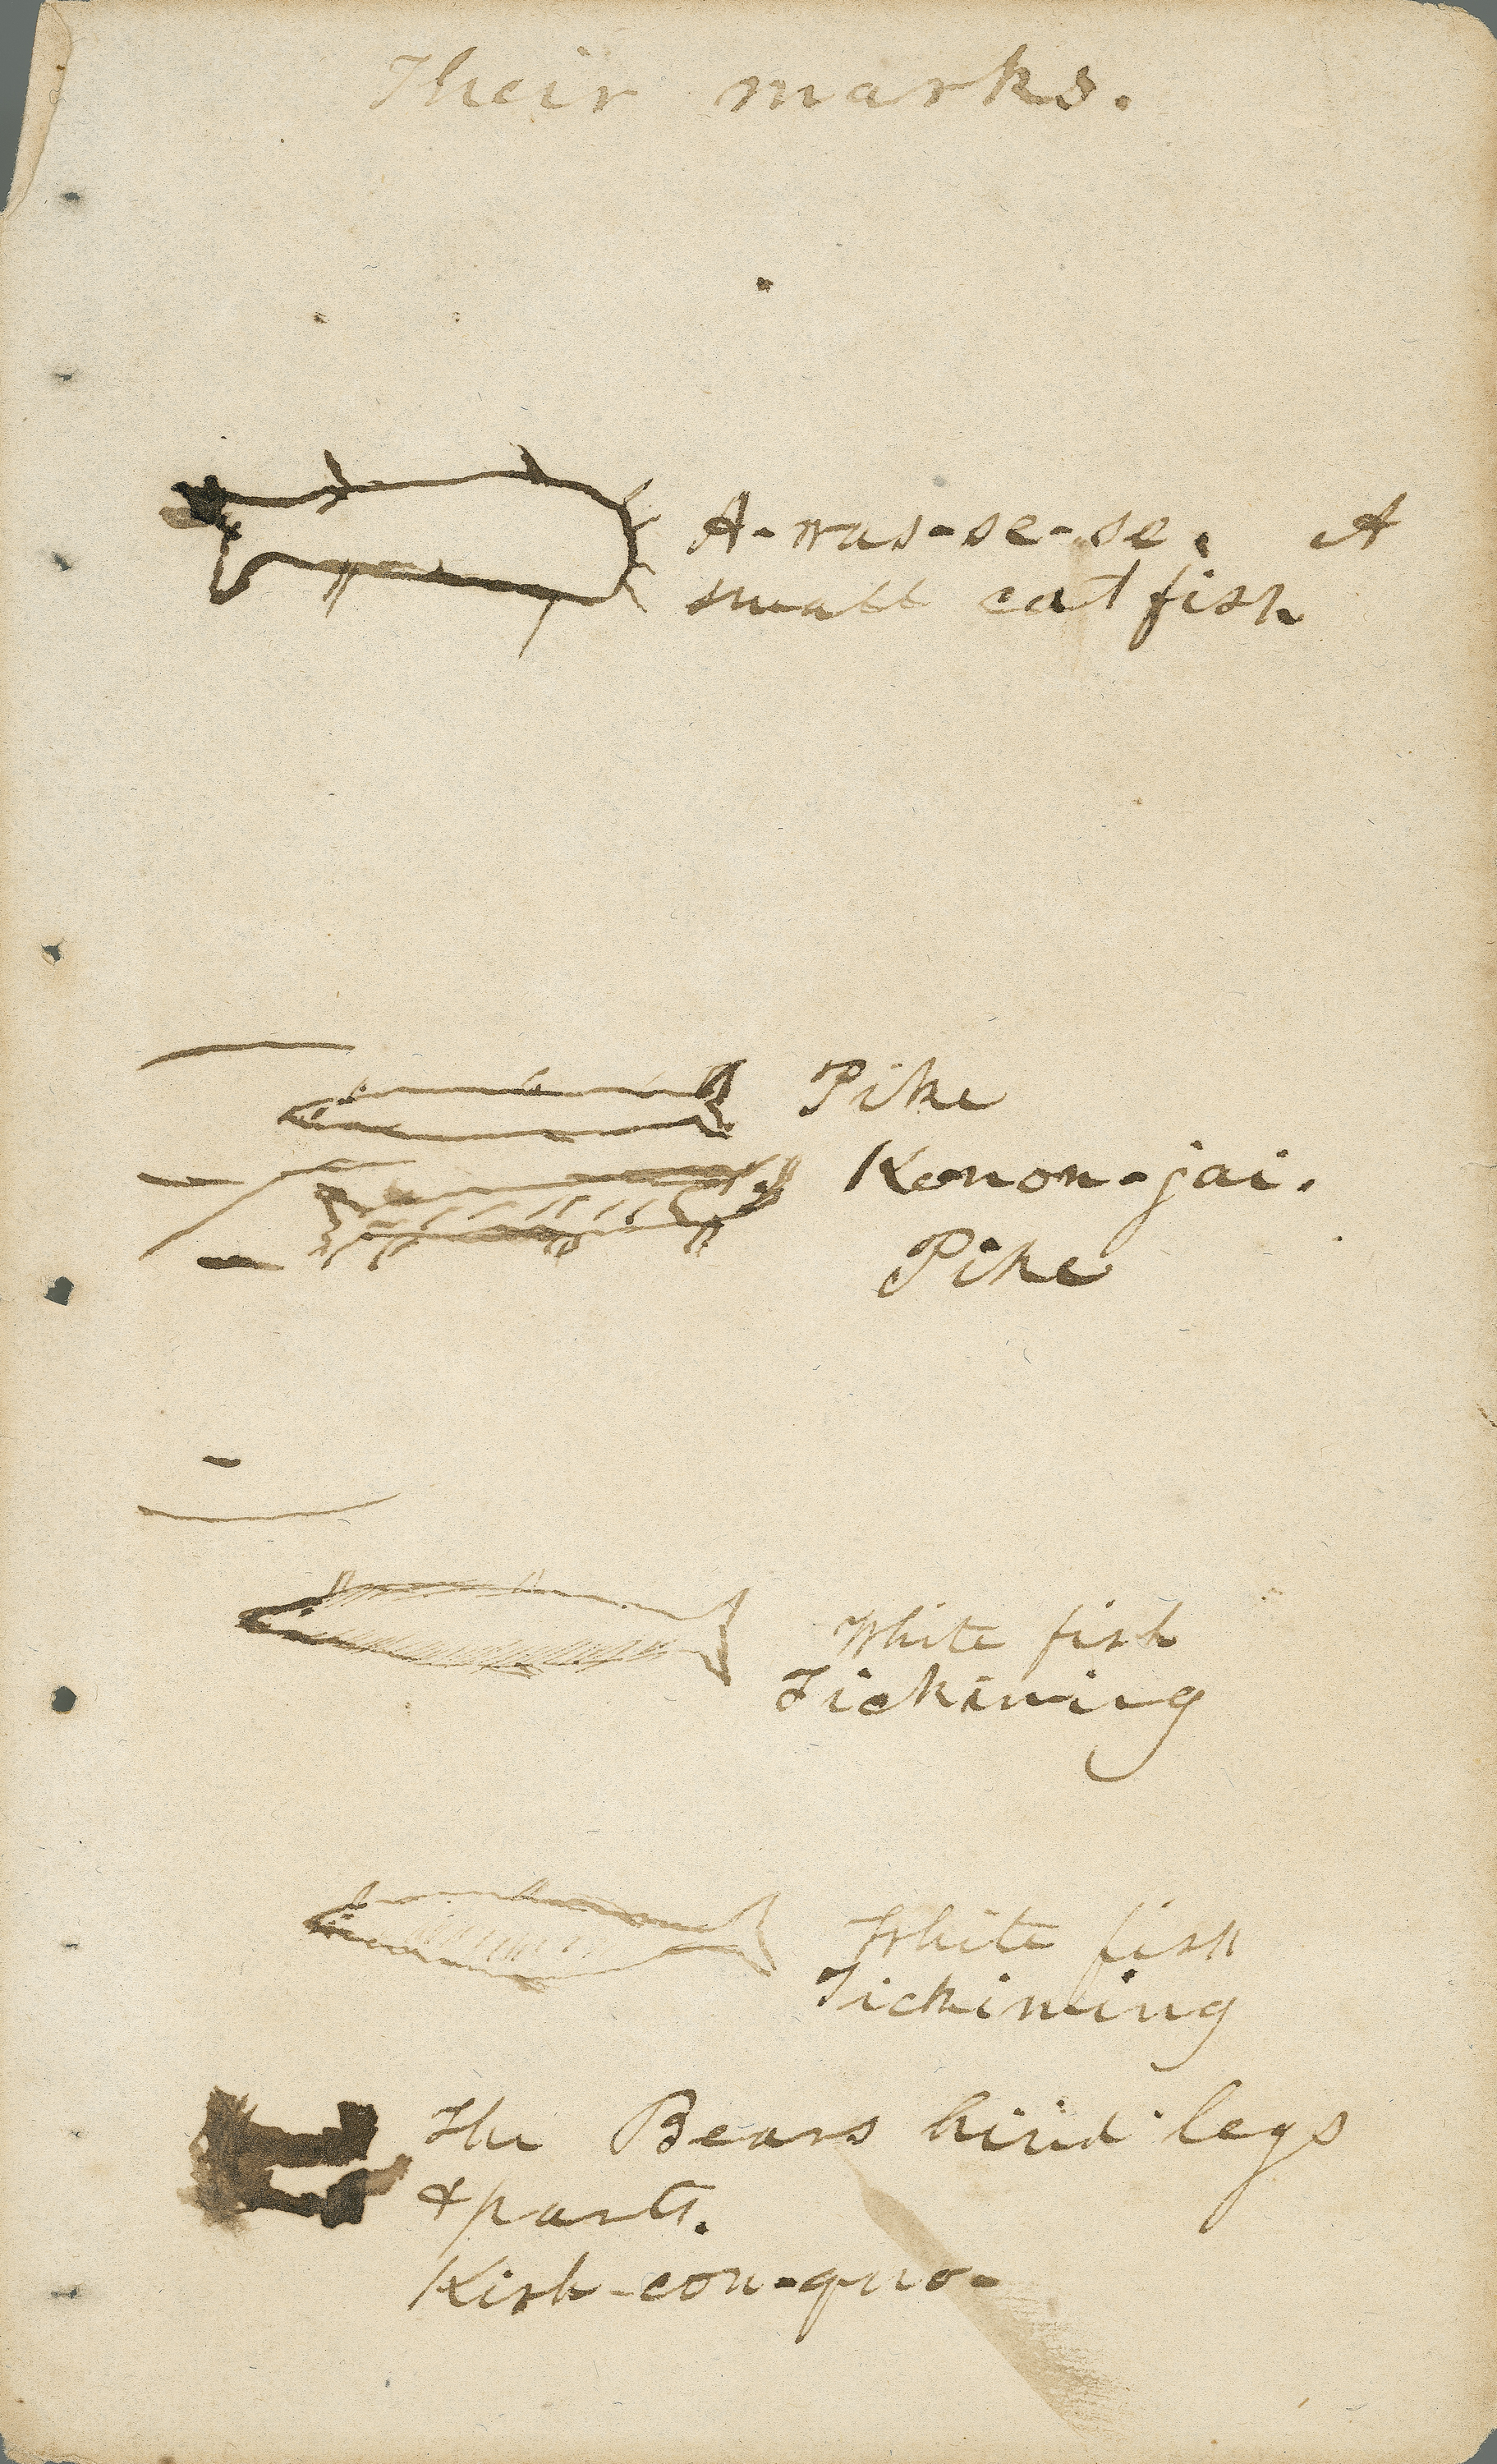 Their marks.
A-was-se-se. A
small cat fish
Pike
Kenon-jai.
Pike
White fish
Tickiming
White fish
Tickiming
The Bears hind legs
& parts.
Kish-con-quo-